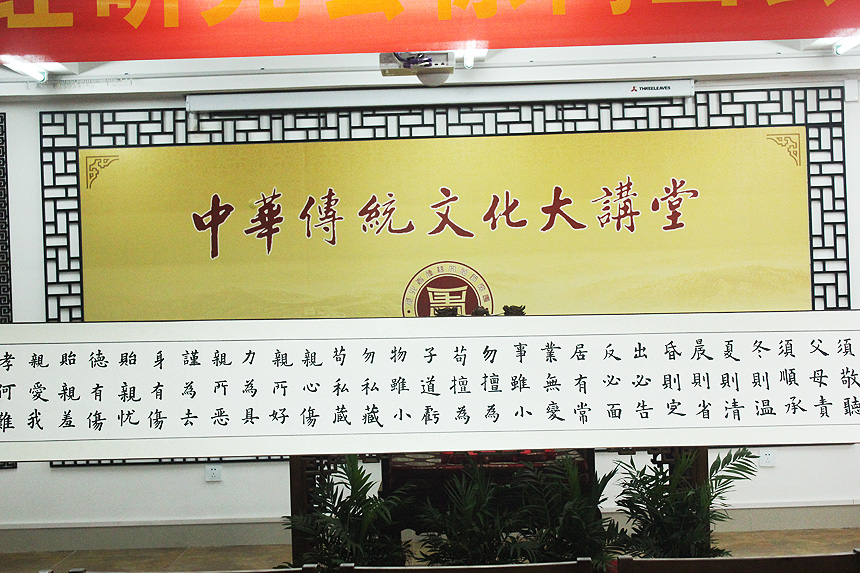 THREELEAVES
中華傳統文化大講堂
須敬聽
父母責
須順承
冬則温
夏則清
晨則省
昏則定
出必告
反必面
居有常
業無變
事雖小
勿擅為
苟擅為
子道虧
物雖小
勿私藏
苟私蔵
親心傷
親所好
力為具
親所恶
謹為去
身有傷
貽親忧
德有傷
貽親羞
親愛我
孝何難